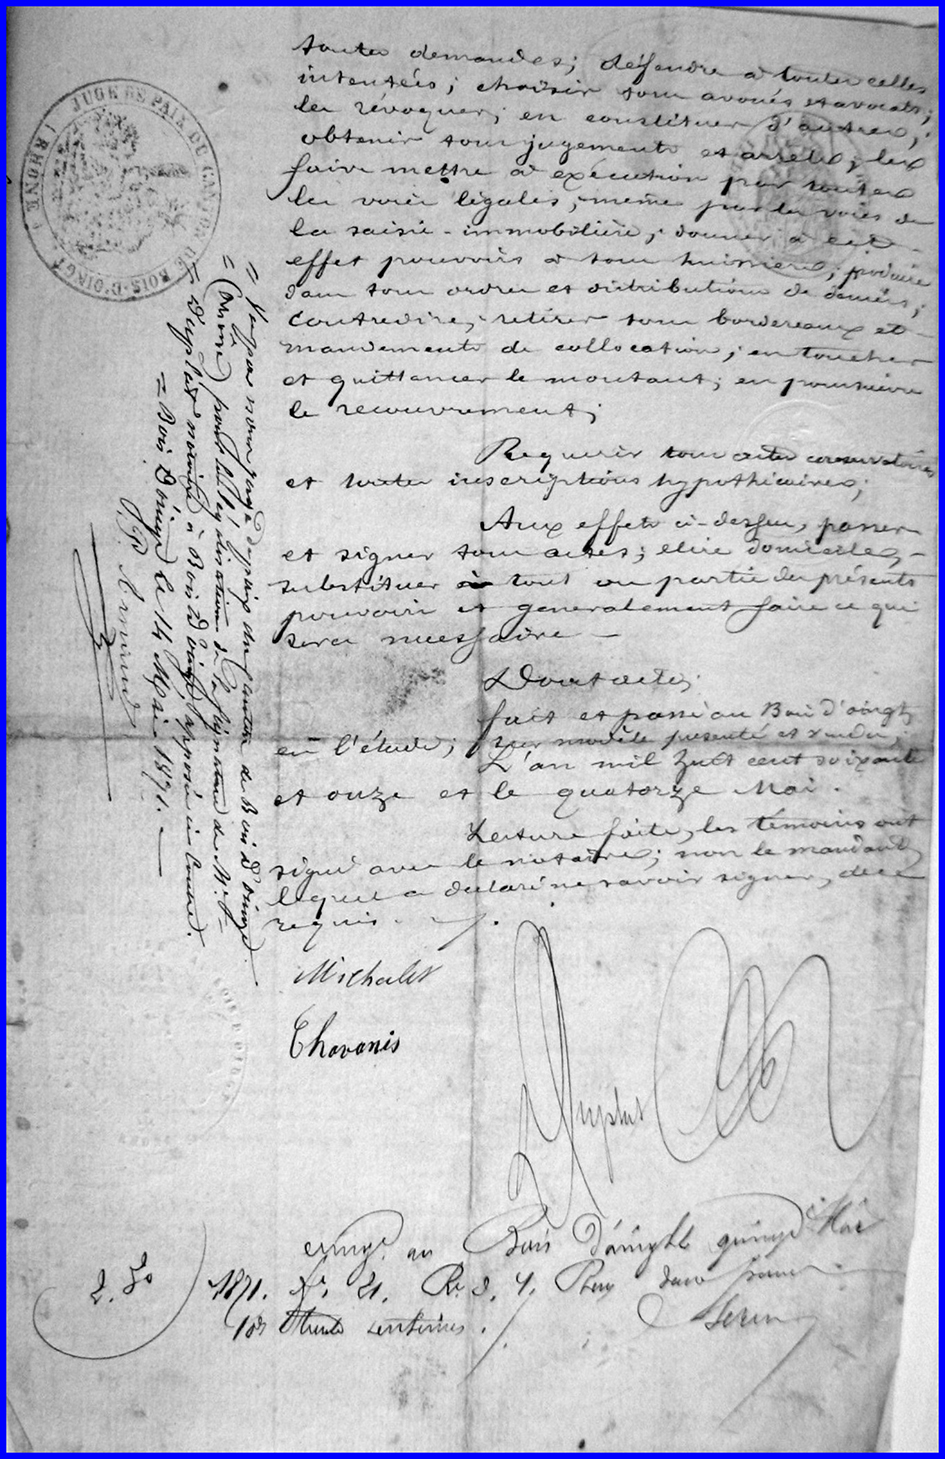 toutes demandes; défendre à toutes celles
intentées; choisir tous avoués et avocats;
les révoquer, en constituer d'autres;
obtenir tous jugements et arrêts, les
faire mettre à exécution par toutes
les voies légales, même par les voies de
la saisie-immobilière, donner à cet
effet pouvoirs à tous huissiers; produire
dans tous ordres et distributions de deniers;
contredire, retirer tous bordereaux et
mandements de collocation; en toucher
et quittancer le montant; en poursuivre
le recouvrement;
Requérir tous actes conservatoires
et toutes inscriptions hypothécaires;
Aux effets ci-dessus, passer
et signer tous actes; élire domicile,
substituer en tout ou partie des présents
pouvoirs et généralement faire ce qui
sera nécessaire —
Dont acte;
fait et passé au Bois d'oingt
en l'étude; sur modèle présenté et rendu;
L'an mil huit cent soixante
et onze et le quatorze Mai.
Lecture faite, les témoins ont
signé avec le notaire; non le mandant,
lequel a déclaré ne savoir signer, de ce
requis.
Michalet
Chavanis
Duplat
enregé au Bois d'oingt le quinze Mai
1871. fo 21. Ro C. 4. Reçu deux francs
10es trente centimes.
2.30
= Vu par nous juge de paix du canton de Bois d'oingt
= (Rhône) pour légalisation de la signature de Me
= Duplat notaire à Bois d'oingt apposée ci contre.
= Bois d'oingt le 14 Mai 1871. —
JUGE DE PAIX DU CANTON DE BOIS-D'OINGT
(RHÔNE)